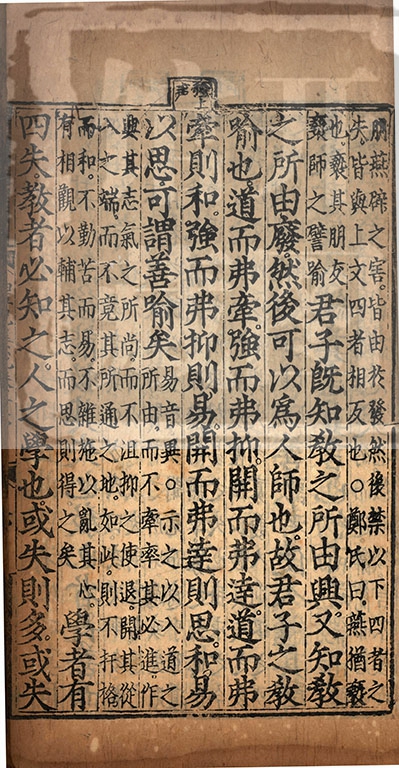 朋燕辟之害。皆由於發然後禁以下四者之
失。皆與上文四者相反也○鄭氏曰。燕猶褻
也。褻其朋友
褻師之譬喻
君子旣知敎之所由興。又知敎
之所由廢。然後可以爲人師也。故君子之敎
喻也。道而弗牽。強而弗抑。開而弗達。道而弗
牽則和。強而弗抑則易。開而弗達則思。和易
以思。可謂善喻矣
易音異○示之以入道之
所由。而不牽率其必進。作
興其志氣之所尚。而不沮抑之使退。開其從
入之端。而不竟其所通之地。如此。則不扞格
而和。不勤苦而易。不雜施以亂其心。
有相觀以輔其志。而思則得之矣
學者有
四失。敎者必知之。人之學也。或失則多。或失
上